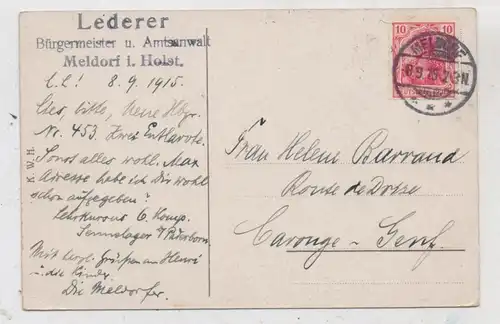 Lederer
Bürgermeister u. Amtsanwalt
Meldorf i. Holst.
L.L! 8. 9. 1915.
bitte, neue
Nr. 453. Zwei
Sonst alles wohl. Max
Adresse habe ich Dir wohl
schon aufgegeben?
6. Komp.
Sennelager b/Paderborn.
Mit herzl. Grüßen an Henri
u. die Kinder
Die Meldorfer.
K. W. H.
10 10
MELDORF
8.9.15.7-8N
Frau Helene Barraud
Route de Drize
Carouge - Genf.